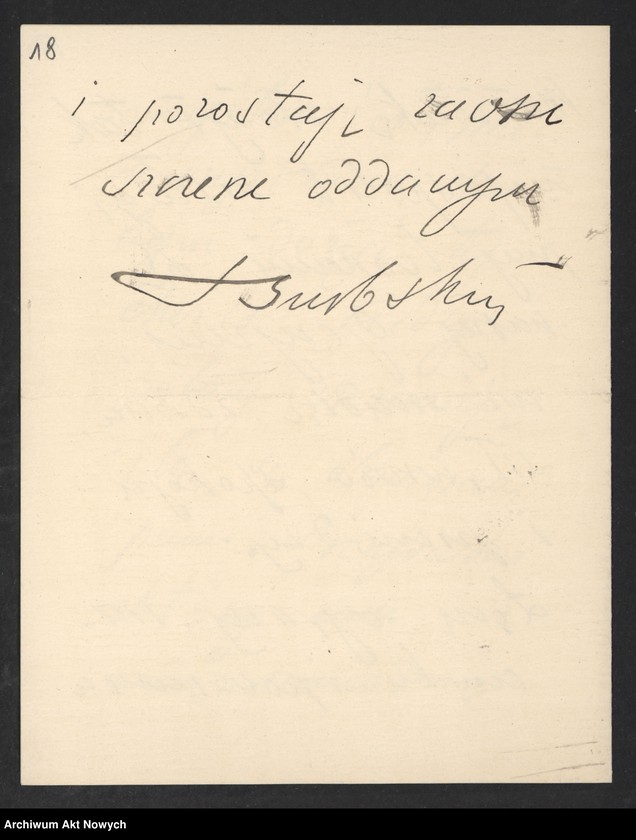 18
i pozostaję zawsze
szczerze oddanym
Archiwum Akt Nowych